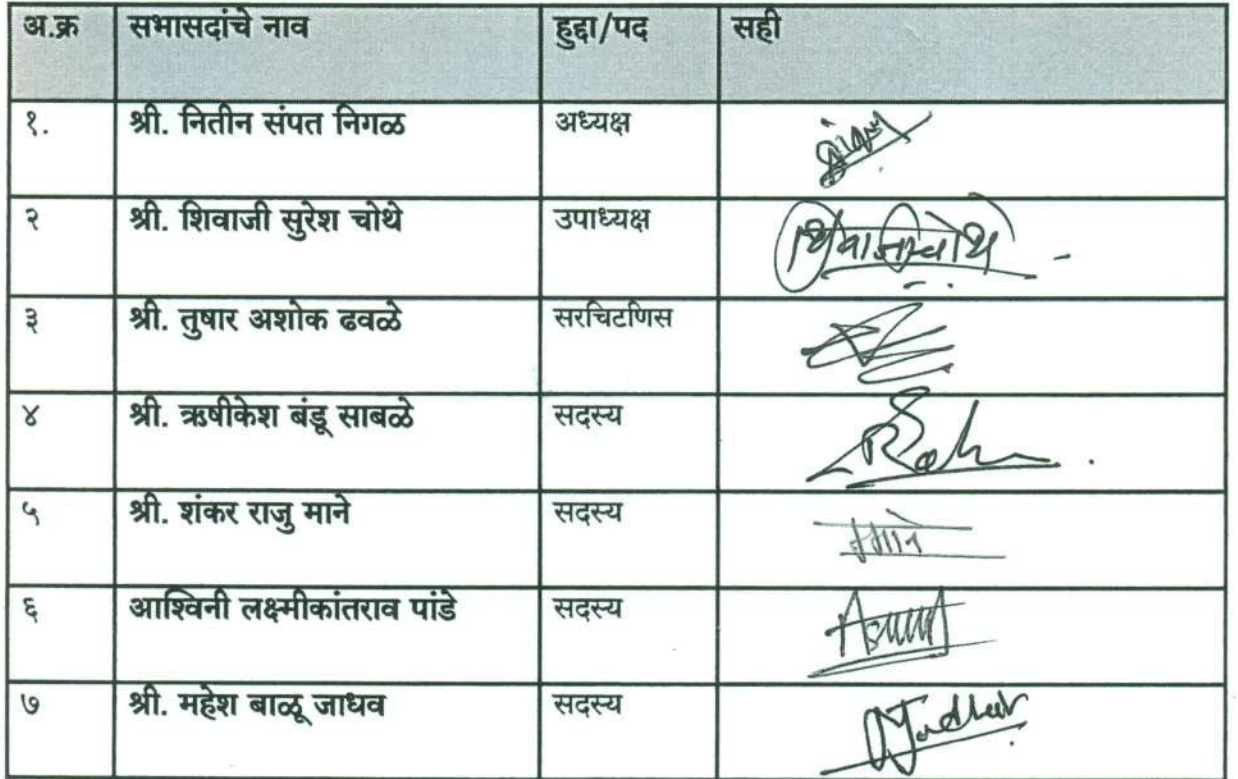 अ.क्र सभासदांचे नाव हुद्दा/पद सही
१. श्री. नितीन संपत निगळ अध्यक्ष
२ श्री. शिवाजी सुरेश चोथे उपाध्यक्ष शिवाजी चोथे
३ श्री. तुषार अशोक ढवळे सरचिटणिस
४ श्री. ऋषीकेश बंडू साबळे सदस्य
५ श्री. शंकर राजु माने सदस्य
६ आश्विनी लक्ष्मीकांतराव पांडे सदस्य
७ श्री. महेश बाळू जाधव सदस्य